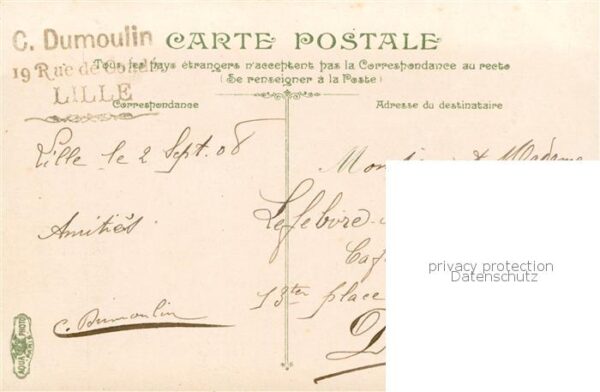 C. Dumoulin
19 Rue de Condé
LILLE
CARTE POSTALE
Tous les pays étrangers n'acceptent pas la Correspondance au recto
(Se renseigner à la Poste)
Correspondance
Adresse du destinataire
Lille le 2 Sept. 08
Amitiés
C. Dumoulin
Monsieur et Madame
Lefebvre
13ter place
privacy protection
Datenschutz
AQUA PHOTO